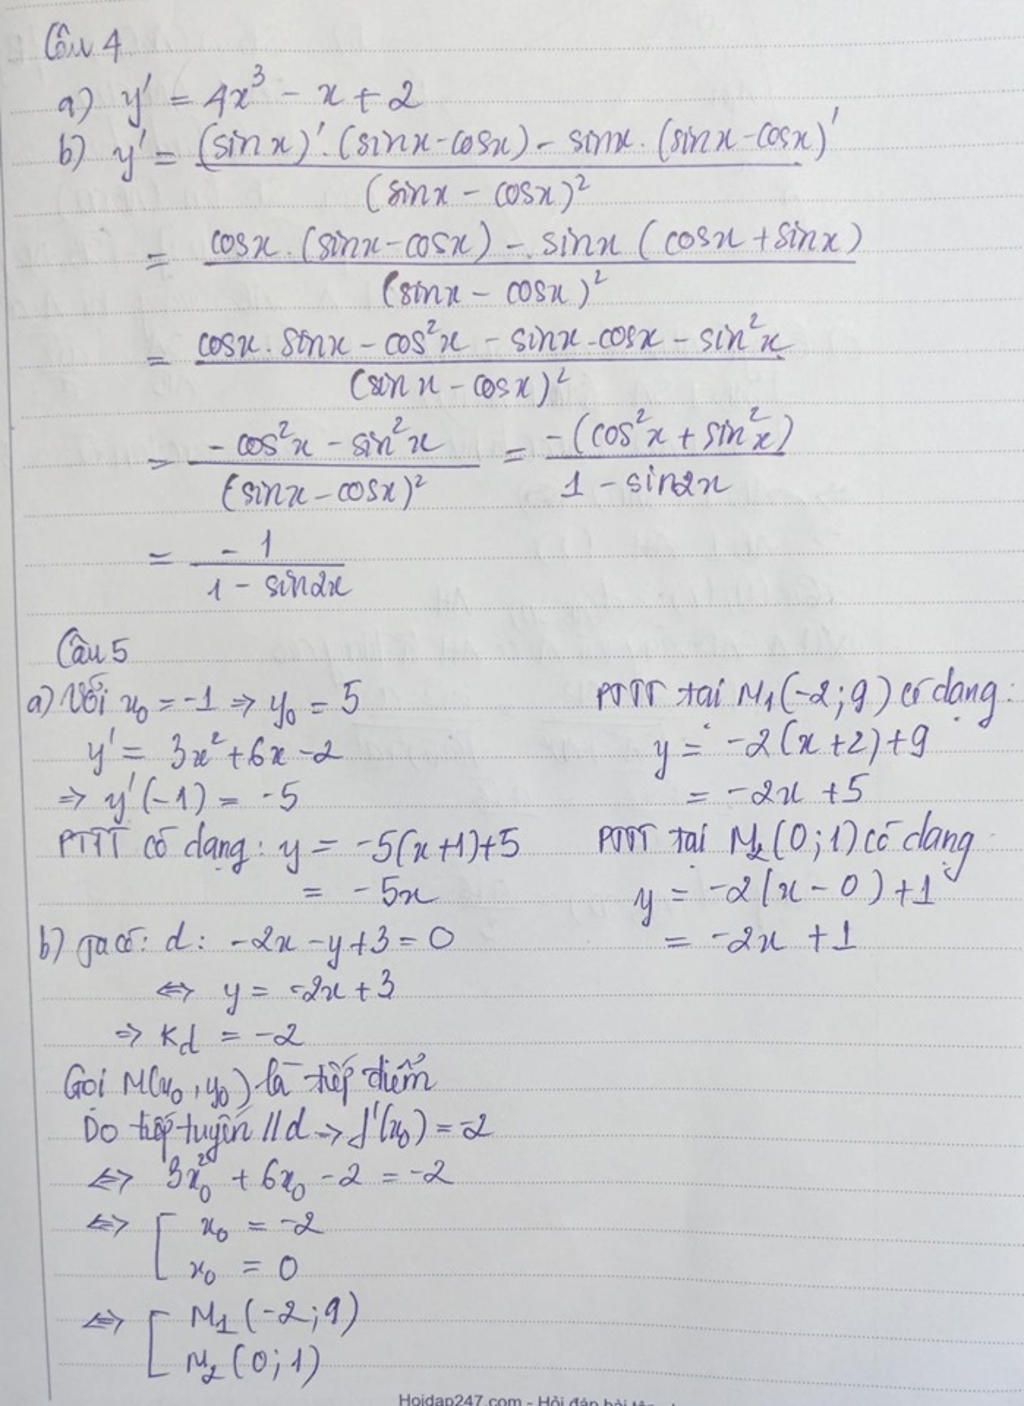 Câu 4
a) y' = 4x³ - x + 2
b) y' = \frac{(sinx)'.(sinx-cosx) - sinx.(sinx-cosx)'}{(sinx - cosx)²}
= \frac{cosx.(sinx-cosx) - sinx(cosx+sinx)}{(sinx - cosx)²}
= \frac{cosx.sinx - cos²x - sinx.cosx - sin²x}{(sinx - cosx)²}
= \frac{-cos²x - sin²x}{(sinx-cosx)²} = \frac{-(cos²x + sin²x)}{1 - sin2x}
= \frac{-1}{1 - sin2x}
Câu 5
a) Với x₀ = -1 ⇒ y₀ = 5
y' = 3x² + 6x - 2
⇒ y'(-1) = -5
PTTT có dạng: y = -5(x+1)+5
= -5x
b) Ta có: d: -2x - y + 3 = 0
⇔ y = -2x + 3
⇒ Kd = -2
Gọi M(x₀, y₀) là tiếp điểm
Do tiếp tuyến // d → f'(x₀) = -2
⇔ 3x₀² + 6x₀ - 2 = -2
⇔ [ x₀ = -2
x₀ = 0
⇔ [ M₁(-2;9)
M₂(0;1)
PTTT tại M₁(-2;9) có dạng:
y = -2(x+2)+9
= -2x + 5
PTTT tại M₂(0;1) có dạng
y = -2(x-0)+1
= -2x + 1
Hoidap247.com - Hỏi đáp bài